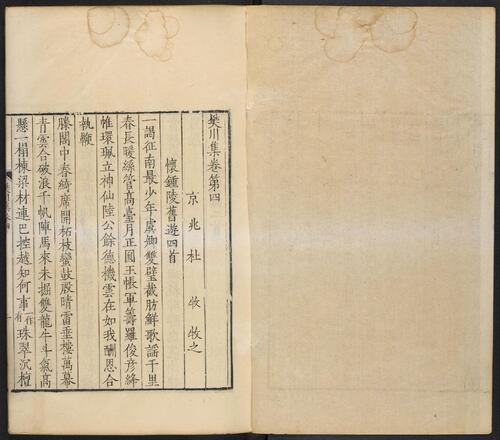 樊川集卷第四
京兆杜牧牧之
懷鍾陵舊遊四首
一謁征南最少年虞卿雙璧截肪鮮歌謠千里
春長暖絲管高臺月正圓玉帳軍籌羅俊彥絳
帷環珮立神仙陸公餘德機雲在如我酬恩合
執鞭
滕閣中春綺席開柘枝蠻鼓殷晴雷垂樓萬幕
青雲合破浪千帆陣馬來未掘雙龍牛斗氣高
懸一榻棟梁材連巴控越知何事一作有珠翠沉檀